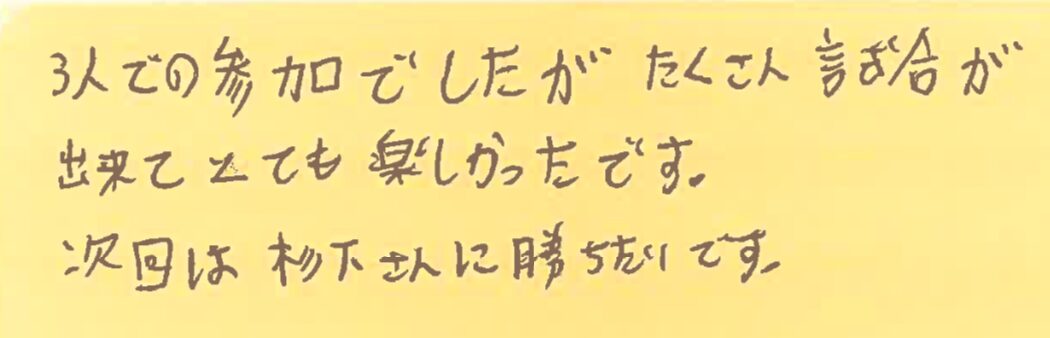 3人での参加でしたが たくさん 試合が
出来て とても 楽しかったです。
次回は 杉下さんに勝ちたいです。